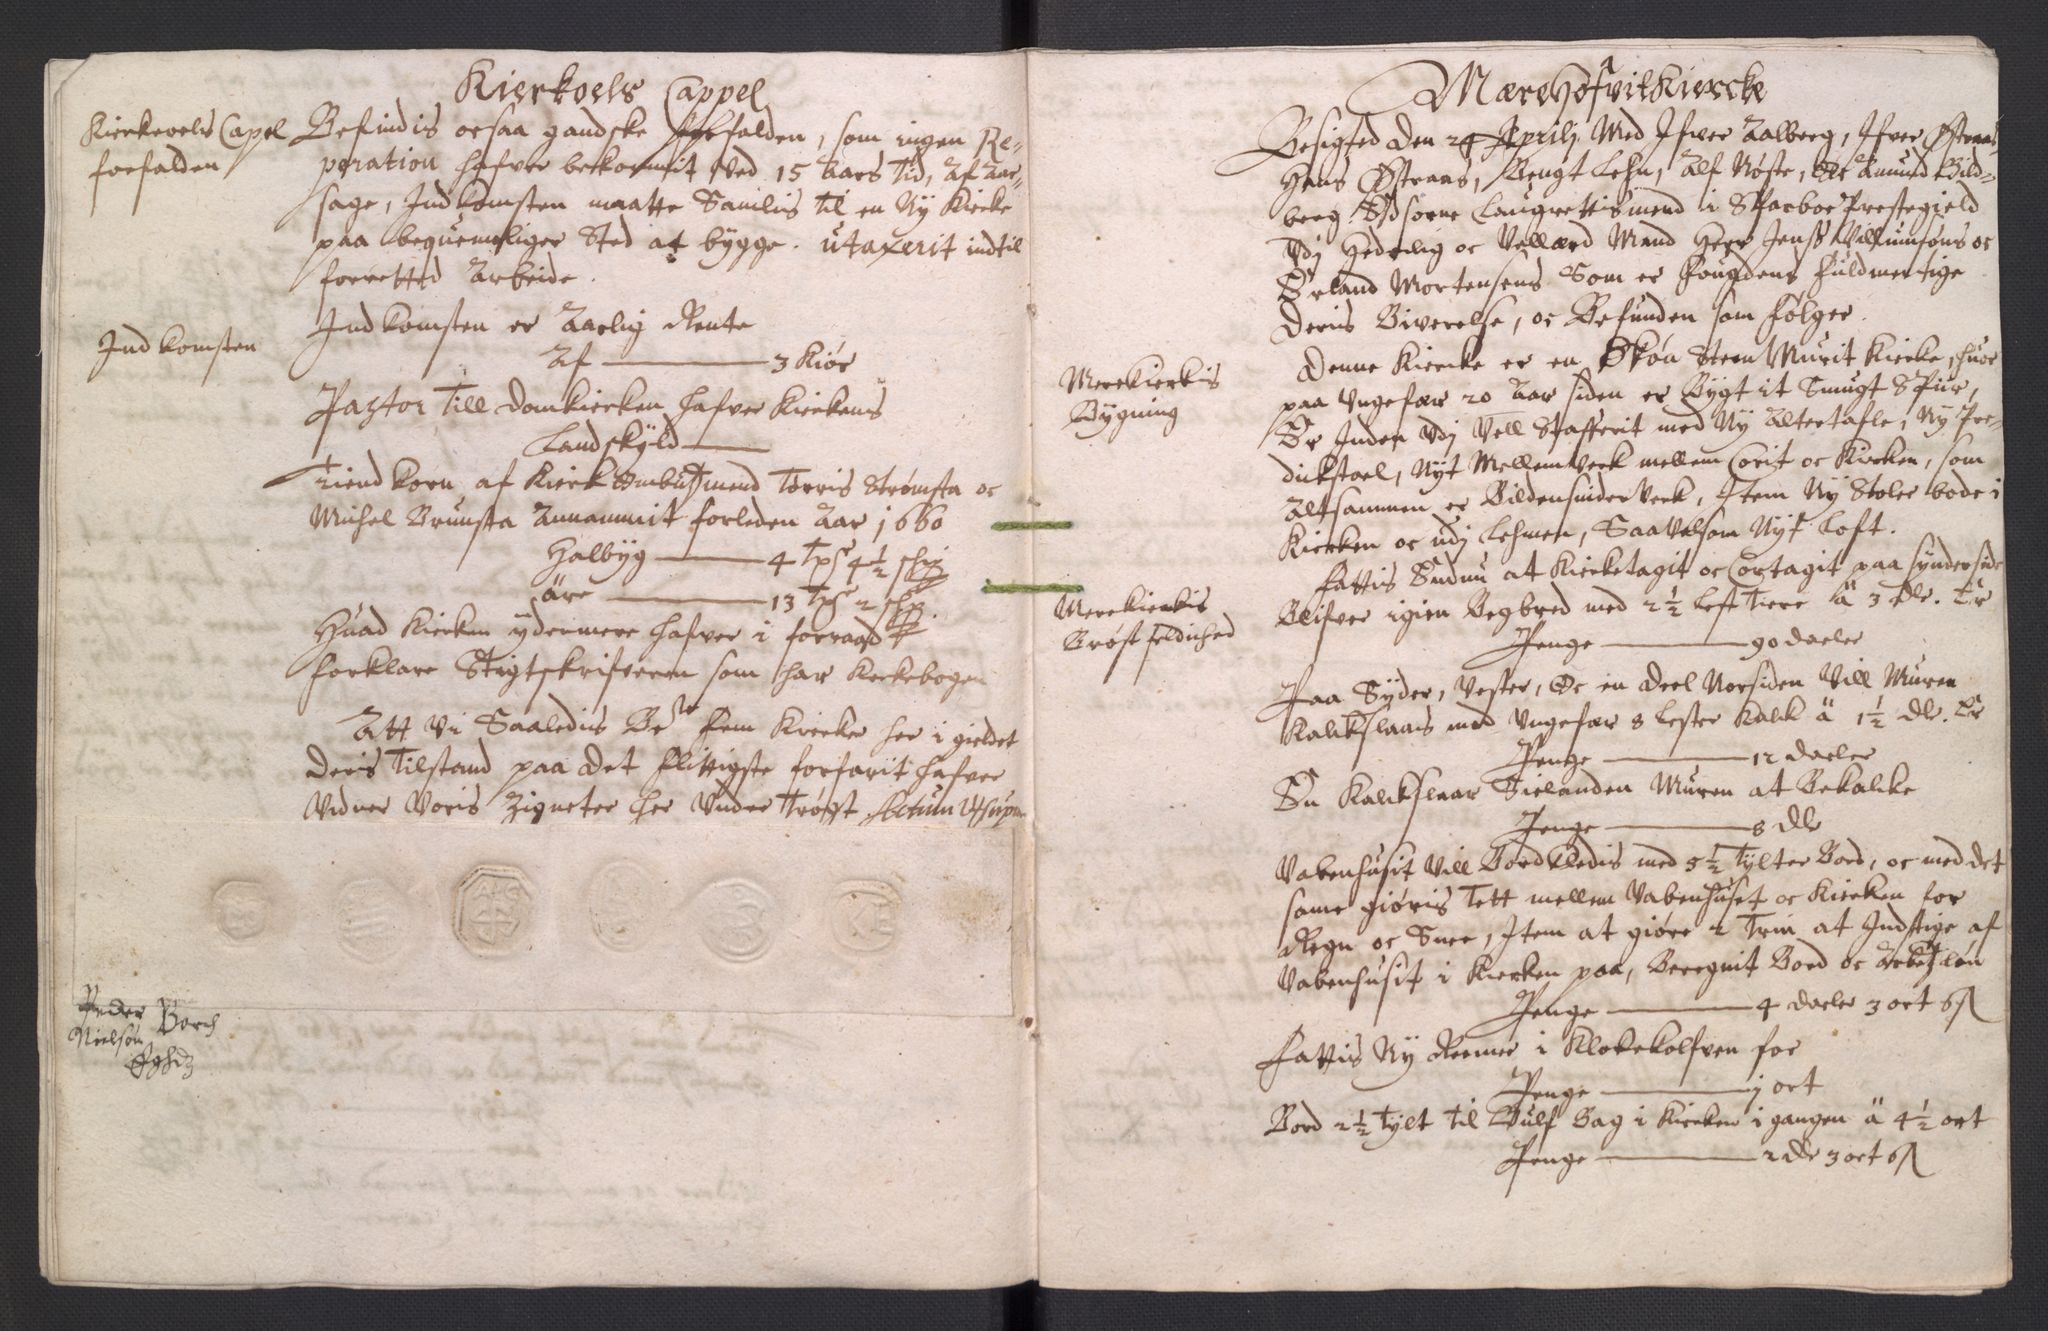 Kierkoels Cappel
Kierkevels Capel
forfalden
Befindis ocsaa gandske forfalden, som ingen Re-
peration hafver bekommit ved 15 Aars Tid, Af Aar-
sage, Indkomsten maatte Samlis til en Ny Kircke
paa bequemeliger Sted at bygge. utaxerit indtil
forretted Arbeide.
Indkomsten
Indkomsten er Aarlig Rente
Af — 3 Kiör
Pastor Till Domkiercken hafver Kierckens
Landskyld —
Tiend korn af Kierk Ombudsmend Torris Strømsta oc
Michel Brunsta Annammit forleden Aar 1660
Halbyg — 4 tpf 4 1/2
äre — 13 tpf 2
Huad Kircken ydermere hafver i forraad
forklare Stigtskrifveren som har Kirckebogen
Att Vi Saaledis Be.te Fem Kircker her i gieldet
Deris Tilstand paa det flittigste forfarit hafver
Vidner Voris Zigneter her Under Trögt Actum Ut supra
Peder Borch
Nielsøn
Egh
Mære HofvitKiercke
Besigted den 24 Aprilj Med Ifver Aalberg, Ifver Østraas
Hans Østraas, Bengt Lehn, Alf Nøste, Oc Amund Bild-
berg Edsorne Laugrettismend i Sparboe Prestegield
Udj Hederlig oc Vellærd Mand Herr Jenss Villumsöns oc
Erland Mortensens Som er Fougdens Fuldmectige
Deris Biverelse, oc Befunden som Følger.
Merekierkis
Bygning
Denne Kiercke er en Skön Steen Murit Kircke, huor
paa Ungefær 20 Aar siden er Bygt it Smugt Spiir,
Er Inden Udj Vell Stafferit med Ny Altertafle, Ny Pre-
dickstoel, Nyt Mellemverk mellem Corit oc Kircken, som
Altsammen er Bildensnider Verk, Item Ny Stoler bode i
Kircken oc udj Lehmen, Saavelsom Nyt Loft.
Merekierkis
Brøstfeldighed
Fattis Endnu at Kircketagit oc Cortagit paa Syndersiden
Blifver igien Begbred med 2 1/2 Lest Tiere ä 3 Dlr. Er
Penge — 90 daler
Paa Syder, Vester, Oc en deel Norsiden Vill Muren
Kalckslaaes med Ungefær 8 Lester Kalck ä 1 1/2 Dlr. Er
Penge — 12 daeler
En Kalckslaar Muren at Bekalcke
Penge — 8 Dlr
Vabenhusit Vill Bordkledis med 5 1/2 Tylter Bord, oc med det
same giøris Tett mellem Vabenhuset oc Kircken for
Regn oc Snee, Item at giøre 2 Trin at Indstige af
Vabenhusit i Kircken paa, Beregnit Bord oc Arbeidzløn
Penge — 4 daeler 3 ort 6 ß
Fattis Ny Reemer i Klokekolfven for
Penge — j ort
Bord 2 1/2 tylt til Gulf Bag i Kircken i gangen ä 4 1/2 ort
Penge — 2 Dlr 3 ort 6 ß